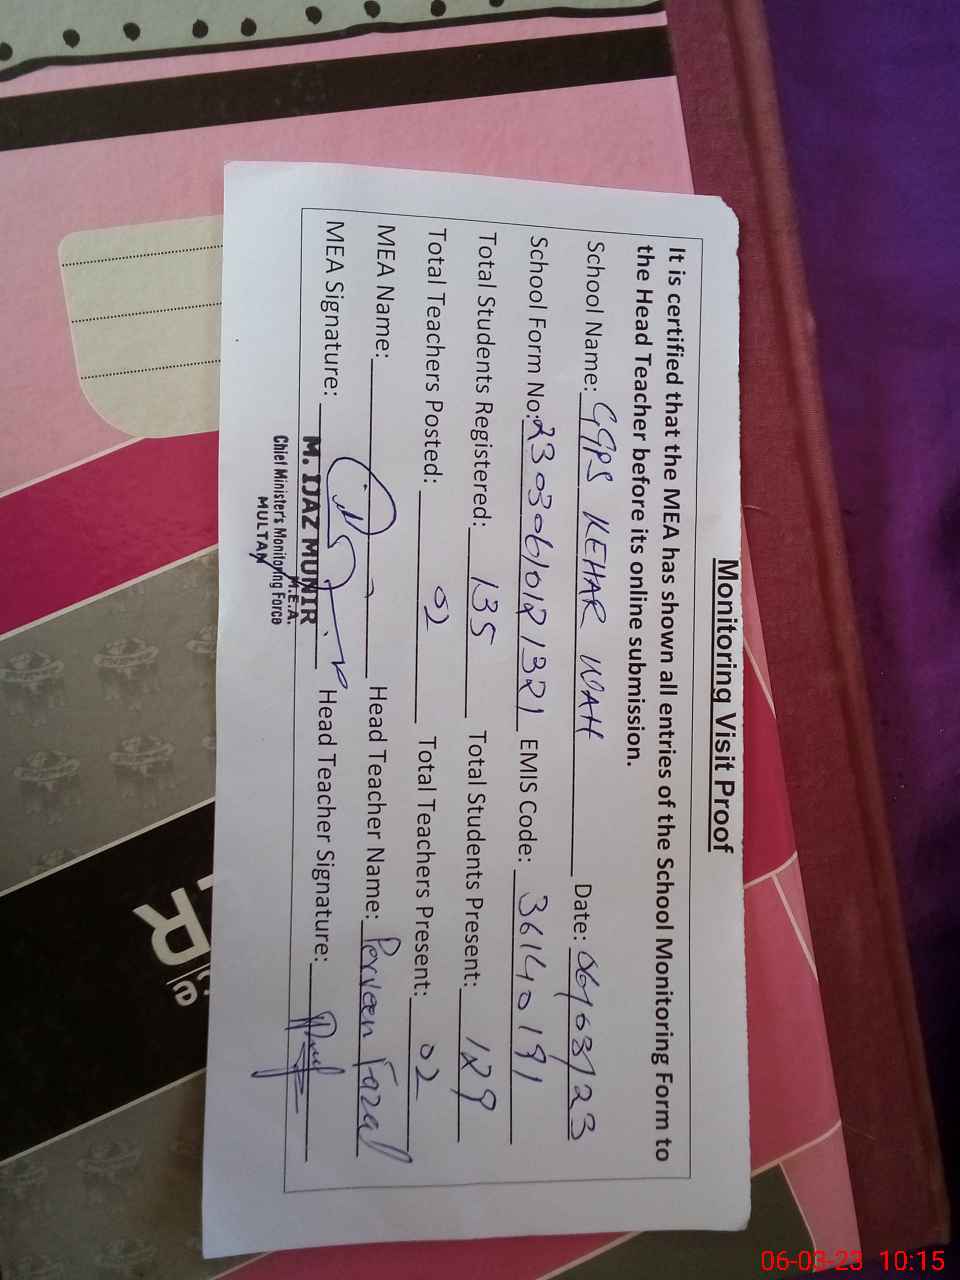 Monitoring Visit Proof
It is certified that the MEA has shown all entries of the School Monitoring Form to
the Head Teacher before its online submission.
School Name: GGPS KEHAR WAH Date: 06/03/23
School Form No: 23030610121321 EMIS Code: 36140191
Total Students Registered: 135 Total Students Present: 129
Total Teachers Posted: 02 Total Teachers Present: 02
MEA Name: Head Teacher Name: Perveen Fazal
MEA Signature: Head Teacher Signature:
M. IJAZ MUNIR
M.E.A.
Chief Minister's Monitoring Force
MULTAN
06-03-23 10:15